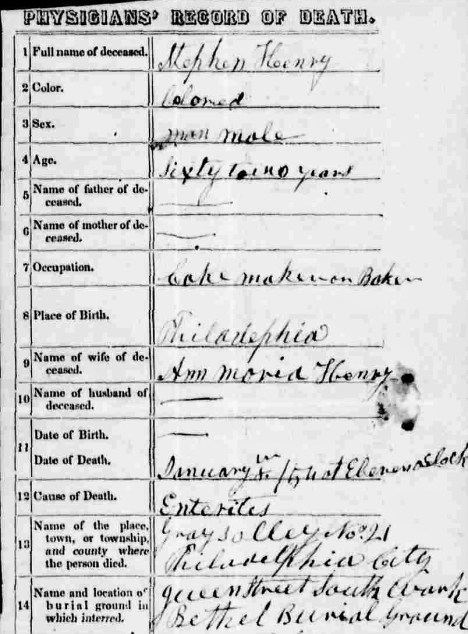 PHYSICIANS' RECORD OF DEATH.
1 Full name of deceased. Stephen Henry
2 Color. Colored
3 Sex. man male
4 Age. Sixty two years
5 Name of father of de-
ceased.
6 Name of mother of de-
ceased.
7 Occupation. Cake maker or Baker
8 Place of Birth. Philadephia
9 Name of wife of de-
ceased. Ann Moria Henry
10 Name of husband of
deceased.
11 Date of Birth.
Date of Death. January at Eleven oClock
12 Cause of Death. Enterites
13 Name of the place,
town, or township,
and county where
the person died.
Grays Alley No. 21
Philadelphia City
14 Name and location of
burial ground in
which interred.
queen Street South
Bethel Burial Ground